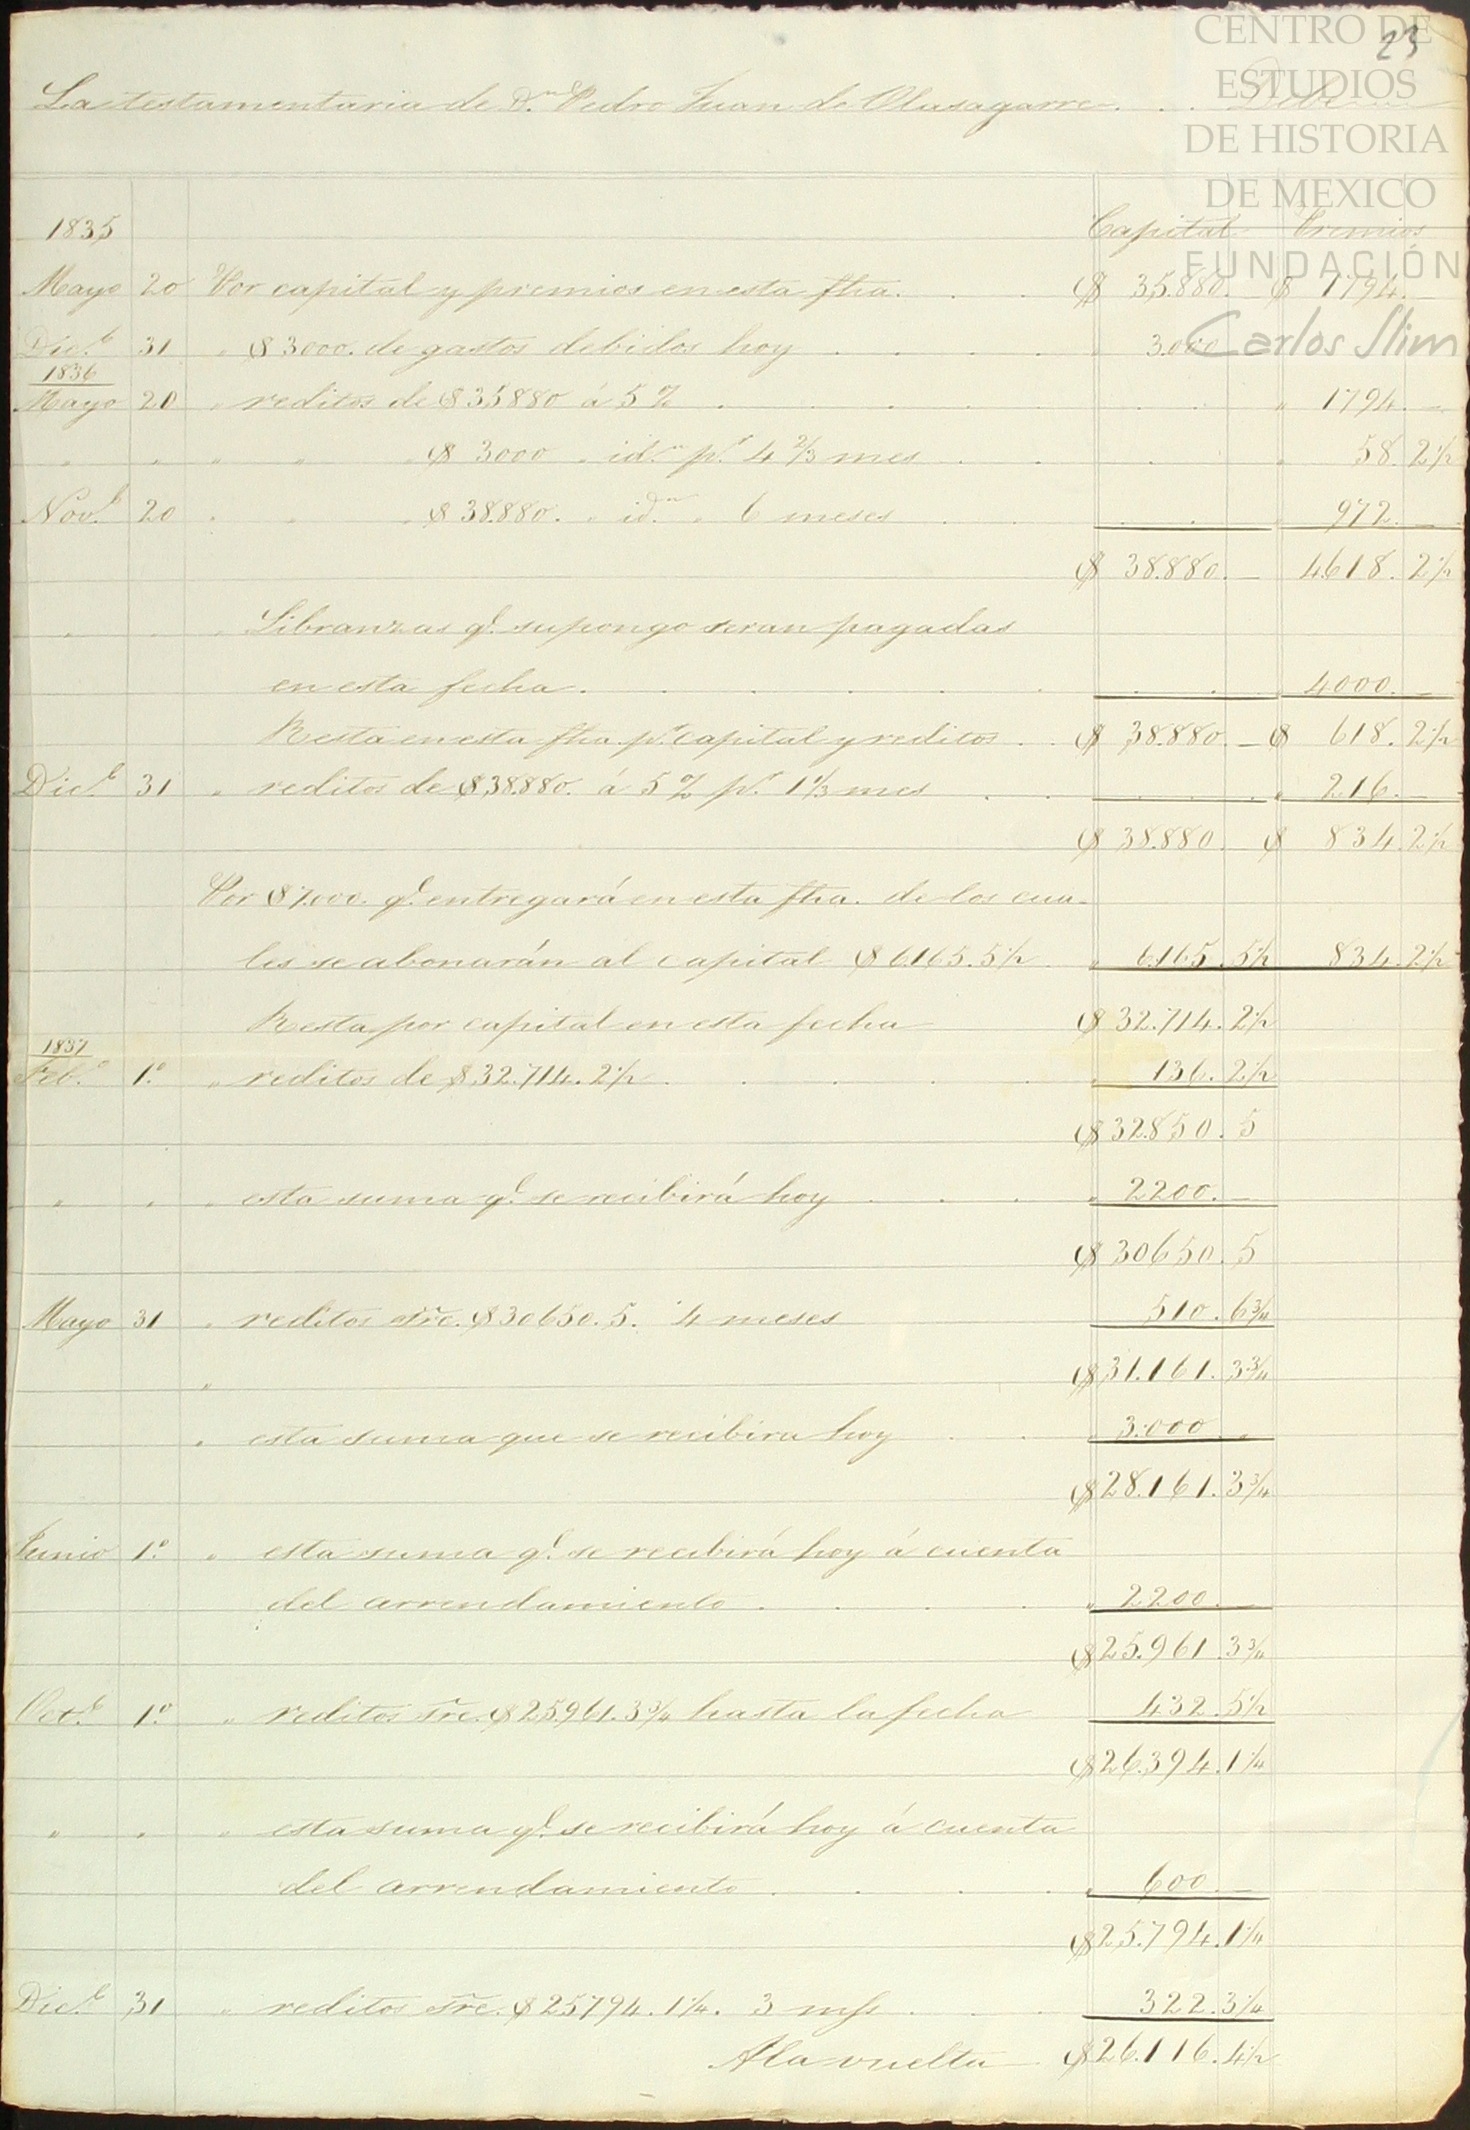 CENTRO DE
ESTUDIOS
DE HISTORIA
DE MEXICO
FUNDACIÓN
Carlos Slim
23
La testamentaria de Dn. Pedro Juan de Olasagarre . . Debe
1835 Capital Premios
Mayo 20 Por capital y premios en esta fha. . . $ 35.880. — $ 1794. —
Dice. 31 " $ 3000. de gastos debidos hoy . . . . " 3.000
1836
Mayo 20 " reditos de $ 35880 á 5 % . . . . . . " 1794. —
" " " " " $ 3000 " id.m pr. 4 2/3 mes . . . " 58. 2 1/2
Nove. 20 " " " $ 38.880. " id.m " 6 meses . . . " 972. —
$ 38.880. — 4618. 2 1/2
" " " Libranzas qe. supongo seran pagadas
en esta fecha. . . . . . . . 4000. —
Resta en esta fha. pr. capital y reditos . . $ 38.880. — $ 618. 2 1/2
Dice. 31 " reditos de $ 38.880. á 5 % pr. 1 1/3 mes . . . . " 216. —
$ 38.880. — $ 834. 2 1/2
Por $ 7.000. qe. entregará en esta fha. de los cua-
les se abonarán al capital $ 6165. 5 1/2 " 6.165. 5 1/2 834. 2 1/2
Resta por capital en esta fecha $ 32.714. 2 1/2
1837
Febo. 1.o " reditos de $ 32.714. 2 1/2 . . . . " 136. 2 1/2
$ 32850. 5
" " " esta suma qe. se recibirá hoy . . . " 2200. —
$ 30650. 5
Mayo 31 " reditos sre. $ 30650. 5. 4 meses 510. 6 3/4
" $ 31.161. 3 3/4
" esta suma que se recibira hoy . . " 3.000 "
$ 28.161. 3 3/4
Junio 1.o " esta suma qe. se recibirá hoy á cuenta
del arrendamiento . . . . " 2200. —
$ 25.961. 3 3/4
Octe. 1.o " reditos sre. $ 25.961. 3 3/4 hasta la fecha 432. 5 1/2
$ 26.394. 1 1/4
" " " esta suma qe. se recibirá hoy á cuenta
del arrendamiento . . . . " 600. —
$ 25.794. 1 1/4
Dice. 31 " reditos sre. $ 25794. 1 1/4. 3 ms . . . 322. 3 1/4
A la vuelta $ 26.116. 4 1/2